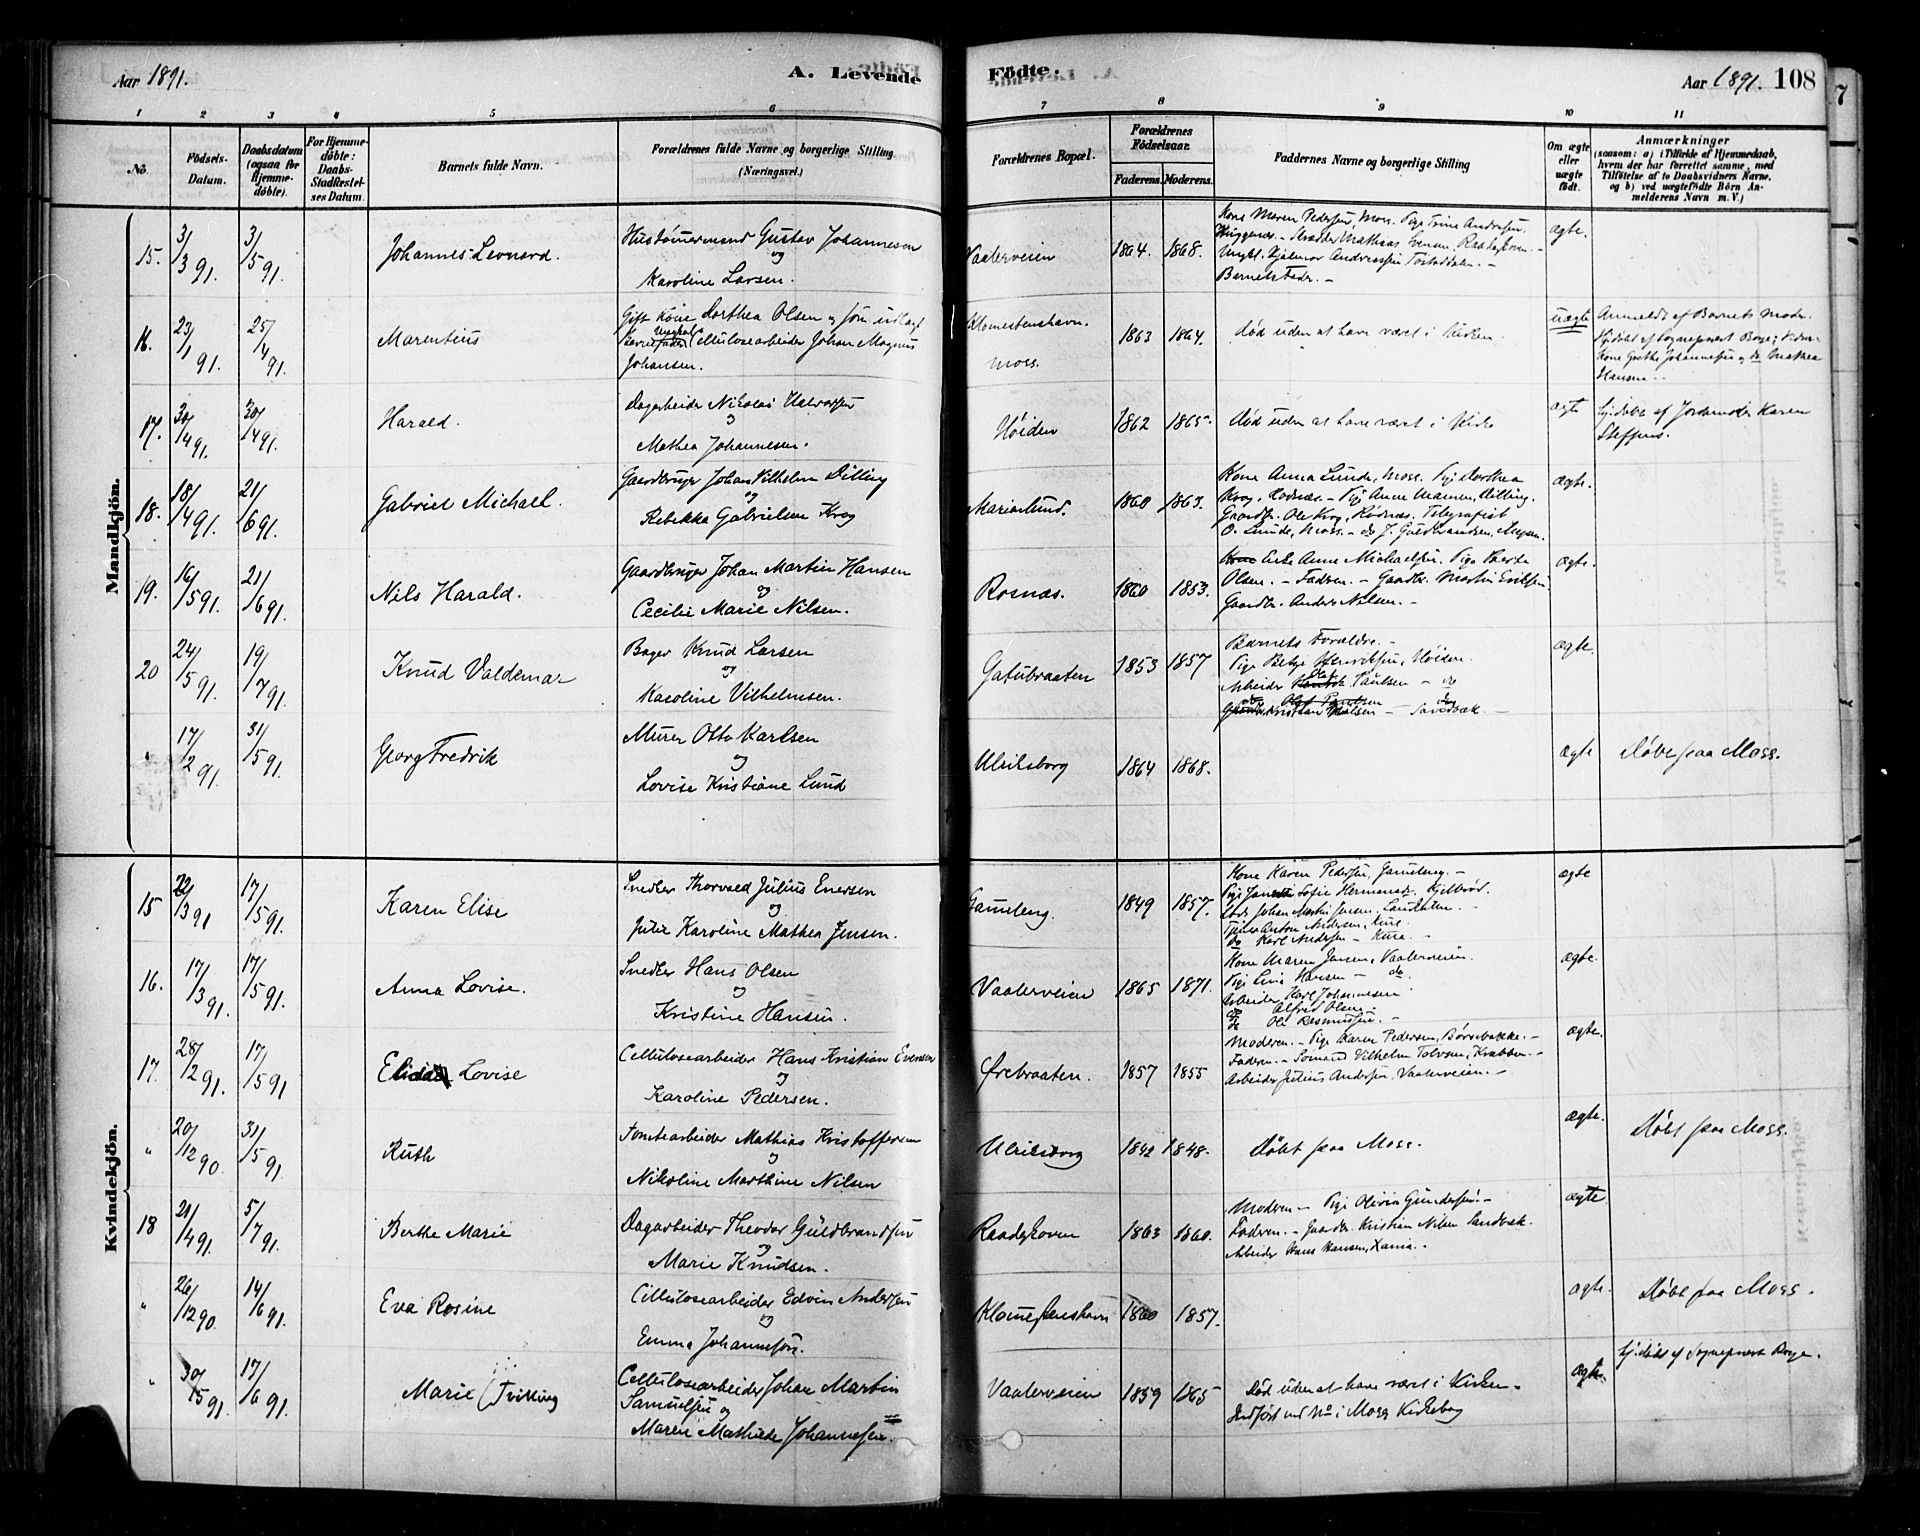 Aar 1891.
A. Levende
Födte.
Aar 1891. 108
1 2 3 4 5 6 7 8 9 10 11
No.
Födsels-Datum.
Daabsdatum (ogsaa for Hjemme-döbte).
For Hjemme-döbte: Daabs-Stadfæstel-ses Datum.
Barnets fulde Navn.
Forældrenes fulde Navne og borgerlige Stilling
(Næringsvei.)
Forældrenes Bopæl.
Forældrenes Födselsaar.
Faderens. Moderens.
Faddernes Navne og borgerlige Stilling
Om ægte eller uægte födt.
Anmærkninger
(saasom: a) i Tilfælde af Hjemmedaab,
hvem der har forrettet samme, med
Tilföielse af to Daabsvidners Navne,
og b) ved uægtefödte Börn An-
melderens Navn m. V.)
Mandkjön.
15. 3/3 91. 3/5 91. Johannes Leonard. Hustømermand Gustav Johannesen og Karoline Larsen. Vaalerveien 1864. 1868. ægte.
Kone Maren Pedersen, Moss. Pige Trine Andersen
Huggenes. - Skrædder Mathias Evensen, Raadeskoven. -
Ungk. Hjalmar Andreassen
Barnets Fader. -
16. 23/1 91. 25/4 91. Marentius Gift Kone Dorthea Olsen og som udlagt Barnefader Ungkal Cellulosearbeider Johan Magnus Johansen. Moss. 1863 1864. død uden at have været i Kirken uægte
Anmeldt af Barnets Moder
Hjdøbt af Sogneprest Borge; Vidner
Kone Grethe Johannesen og do Mathea
Hansen. -
17. 30/4 91. 30/4 91. Harald. Dagarbeider Nikolai Halvorsen og Mathea Johannesen. Høiden 1862 1865 død uden at have været i Kirke ægte
Hjdøbt af Jordemoder Karen
Steffens.
18. 18/4 91. 21/6 91. Gabriel Michael. Gaardbruger Johan Vilhelm Dilling og Rebekka Gabrielsen Krog Marienlund. 1860 1863. ægte.
Kone Anna Lunde, Moss. Pige Dorthea
Krog, Rødnæs. - Pige Anne Dilling.
Gaardbr. Ole Krog, Rødnæs. Telegrafist
O. Lunde, Moss. - do J. Guldbrandsen,
19. 16/5 91. 21/6 91. Nils Harald. Gaardbruger Johan Martin Hansen og Cecilie Marie Nilsen. Rosnæs. 1860 1853. ægte.
Enke Anne Michaelsen. Pige Berte
Olsen. - Faderen. - Gaardbr. Martin Eriksen
Gaardbr. Anders Nilsen. -
20 24/5 91. 19/7 91. Knud Valdemar Bager Knud Larsen og Karoline Vilhelmsen. Gatubraaten 1853 1857 ægte.
Barnets Forældre. -
Pige Betzy Henriksen, Høiden.
Arbeider Paulsen - do
Kristian Nilsen - Sandbæk. -
" 17/2 91. 31/5 91. Georg Fredrik Murer Otto Karlsen og Lovise Kristiane Lund Ulriksborg 1864 1868. ægte Døbt paa Moss.
Kvindekjön.
15 22/3 91 17/5 91. Karen Elise Snedker Thorvald Julius Enersen og Julie Karoline Mathea Jensen. Gameleng. 1849 1857. ægte
Kone Karen Pedersen, Gameleng. -
Pige Sofie Hermansd. Kjelbrød.
Johan Martin Jensen,
Anton Andersen, Kure.
do Karl Andersen - Kure. -
16. 17/3 91. 17/5 91. Anna Lovise. Snedker Hans Olsen og Kristine Hansen. Vaalerveien 1865 1871. ægte.
Kone Maren Jensen, Vaalerveien.
Pige Lina Hansen - do.
Arbeider Karl Johannesen
do Alfred Olsen -
do Ole Rasmussen. -
17. 28/2 91. 17/5 91. Lovise Cellulosearbeider Hans Kristian Evensen og Karoline Pedersen. Ørebraaten. 1857 1855 ægte.
Moderen. - Pige Karen Pedersen, Børsebakke. -
Faderen. - Sømand Vilhelm Tolvsen, Krabben. -
Arbeider Julius Andersen, Vaalerveien. -
" 20/12 90. 31/5 91. Ruth Tomtearbeider Mathias Kristoffersen og Nikoline Marthine Nilsen Ulriksborg 1842 1848. Døbt paa Moss. ægte. Døbt paa Moss.
18 21/4 91. 5/7 91. Berthe Marie Dagarbeider Theodor Guldbrandsen og Marie Knudsen. Raadeskoven 1863 1860. ægte
Moderen - Pige Olivia Gundersen. -
Faderen. - Gaardbr. Kristian Nilsen Sandbæk.
Arbeider Hans Hansen, Xania. -
" 26/12 90. 14/6 91. Eva Rosine Cellulosearbeider Edvin Andersen og Emma Johannesen. 1860 1857. ægte. Døbt paa Moss.
" 30/5 91. 17/6 91. Marie (Tvilling Cellulosearbeider Johan Martin Samuelsen og Maren Mathilde Johannesen. Vaalerveien 1859 1865 ægte.
Død uden at have været i Kirken.
Indført ved No i Moss Kirkebog
Hjdøbt af Sogneprest Borge.